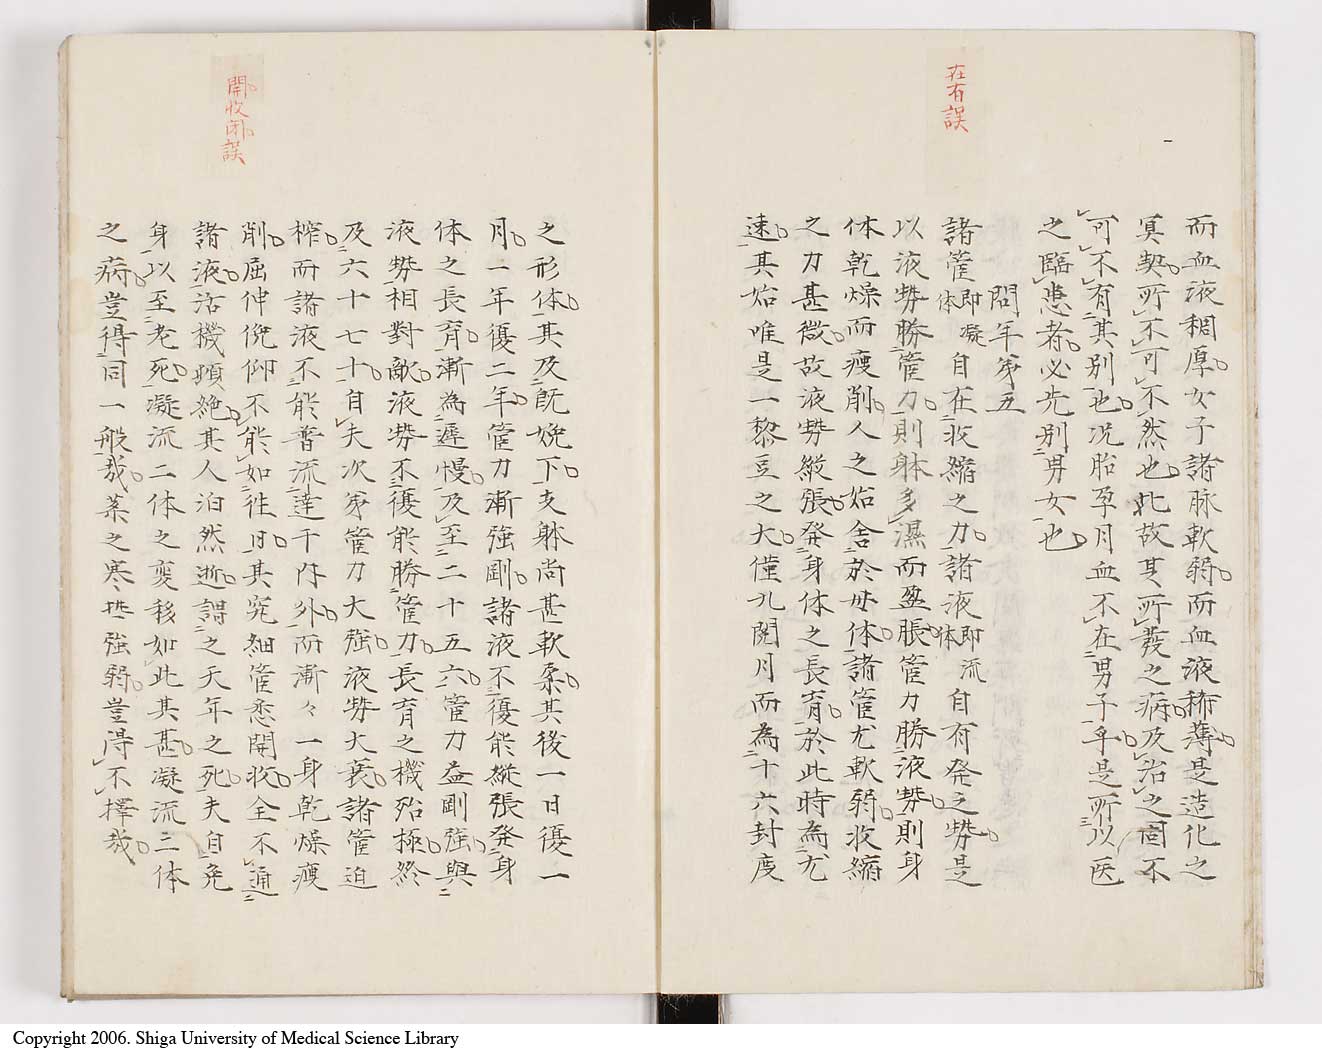 在有誤
而血液稠厚女子諸脉軟弱而血液稀薄是造化之
冥契所不可不然也此故其所發之病及治之固不
可不有其別也况胎孕月血不在男子乎是所以医
之臨患者必先别男女也
問年第五
諸管即凝体自在收縮之力諸液即流体自有発之勢是
以液勢勝管力則躰多濕而盈脹管力勝液勢則身
体乾燥而瘦削人之始舎於母体諸管尤軟弱收縮
之力甚微故液勢縱張発身体之長育於此時為尤
速其始唯是一黎豆之大僅九閲月而為十六封度
開收闭誤
之形体其及既娩下支躰尚甚軟柔其後一日復一
月一年復二年管力漸強剛諸液不復能縱張発身
体之長育漸為遲慢及至二十五六管力益剛強與
液勢相對敵液勢不復能勝管力長育之機殆極終
及六十七十自夫次第管力大強液勢大衰諸管迫
榨而諸液不能普流達于内外而漸々一身乾燥瘦
削屈伸俛仰不能如徃日其究細管悉開收全不通
諸液活機頓絶其人泊然逝謂之天年之死夫自免
身以至老死凝流二体之変移如此其甚凝流二体
之病豈得同一般哉薬之寒热強弱豈得不擇哉
Copyright 2006. Shiga University of Medical Science Library